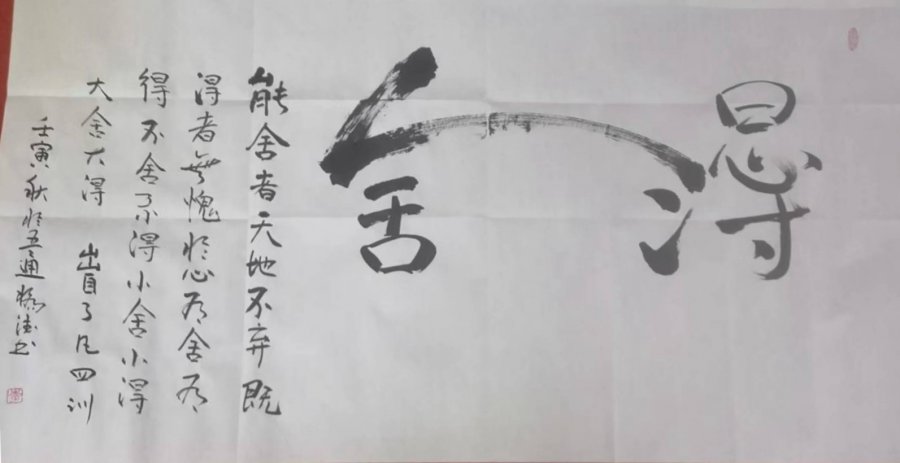 舍得
能舍者天地不弃既
得者無愧於心有舍有
得不舍不得小舍小得
大舍大得 出自了凡四训
壬寅秋於五通 书